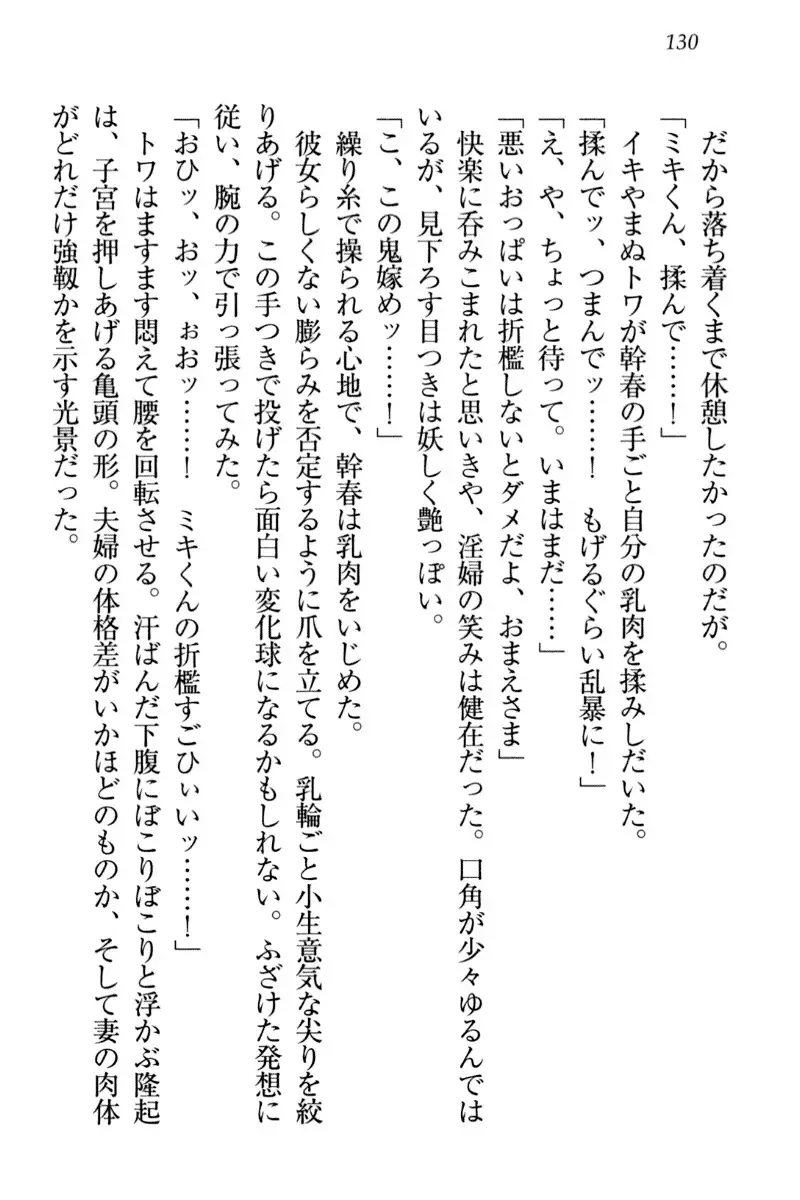 130
だから落ち着くまで休憩したかったのだが。
「ミキくん、揉んで……！」
イキやまぬトワが幹春の手ごと自分の乳肉を揉みしだいた。
「揉んでッ、つまんでッ……！　もげるぐらい乱暴に！」
「え、や、ちょっと待って。いまはまだ……」
「悪いおっぱいは折檻しないとダメだよ、おまえさま」
快楽に呑みこまれたと思いきや、淫婦の笑みは健在だった。口角が少々ゆるんでは
いるが、見下ろす目つきは妖しく艶っぽい。
「こ、この鬼嫁めッ……！」
繰り糸で操られる心地で、幹春は乳肉をいじめた。
彼女らしくない膨らみを否定するように爪を立てる。乳輪ごと小生意気な尖りを絞
りあげる。この手つきで投げたら面白い変化球になるかもしれない。ふざけた発想に
従い、腕の力で引っ張ってみた。
「おひッ、おッ、ぉおッ……！　ミキくんの折檻すごひぃいッ……！」
トワはますます悶えて腰を回転させる。汗ばんだ下腹にぼこりぼこりと浮かぶ隆起
は、子宮を押しあげる亀頭の形。夫婦の体格差がいかほどのものか、そして妻の肉体
がどれだけ強靱かを示す光景だった。